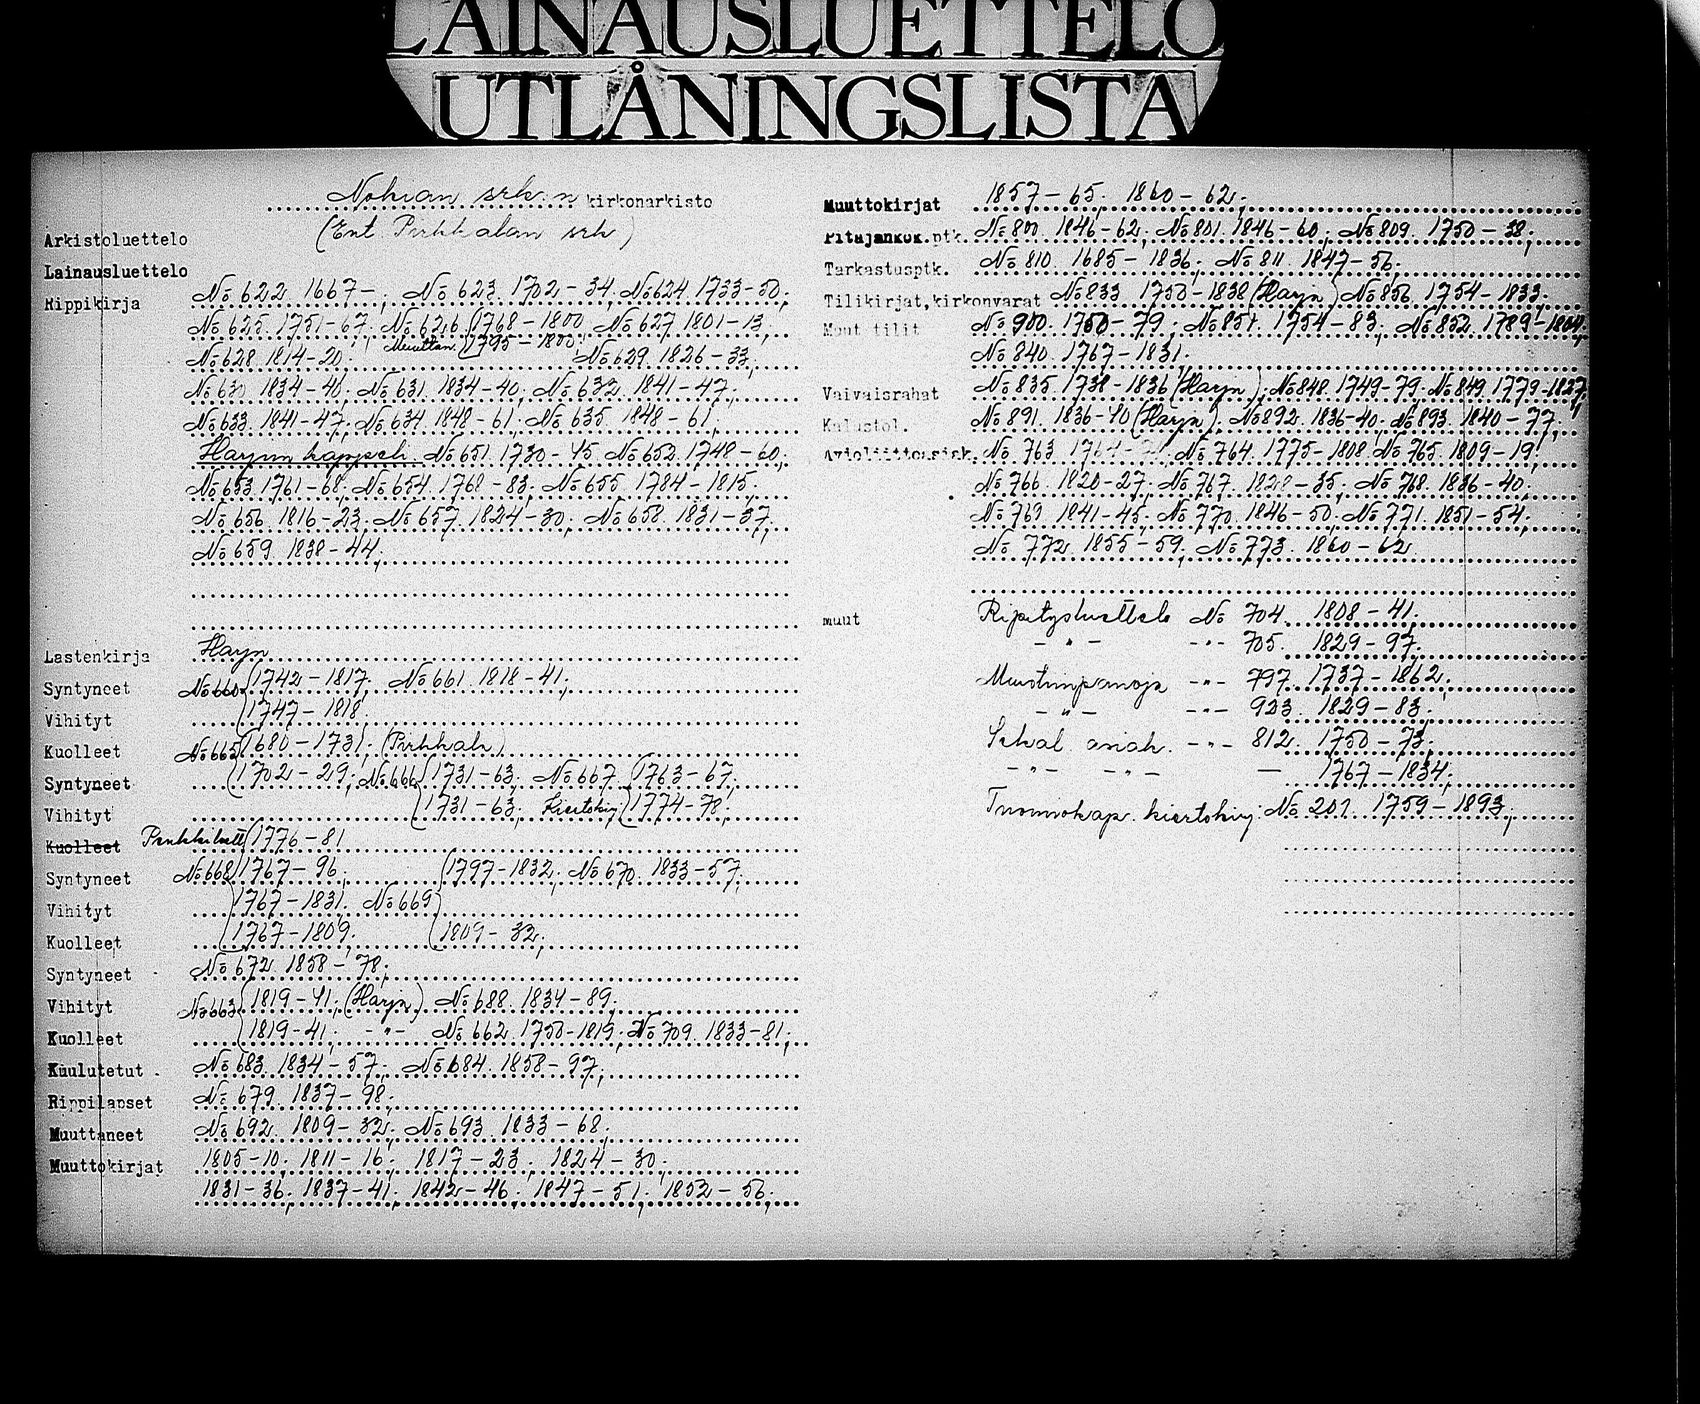 LAINAUSLUETTELO
UTLÅNINGSLISTA
Nokian srk:n kirkonarkisto
Arkistoluettelo (Ent. Pirkkalan srk)
Lainausluettelo
Rippikirja No 622. 1667-; No 623. 1702-34; No 624. 1733-50;
No 625. 1751-67; No 626. 1768-1800; No 627. 1801-13;
No 628. 1814-20; Muuttan. 1795-1800; No 629. 1826-33;
No 630. 1834-40; No 631. 1834-40; No 632. 1841-47;
No 633. 1841-47; No 634. 1848-61; No 635. 1848-61
Harjun kappeli. No 651. 1730-45. No 652. 1748-60;
No 653. 1761-68; No 654. 1768-83; No 655. 1784-1815;
No 656. 1816-23; No 657. 1824-30; No 658. 1831-37;
No 659. 1838-44;
Lastenkirja Harjn
Syntyneet No 660 1742-1817; No 661. 1818-41;
Vihityt 1747-1818
Kuolleet No 665 1680-1731; (Pirkkala)
Syntyneet 1702-29; No 666 1731-63; No 667 1763-67;
Vihityt 1731-63; Kiertokirj 1774-78;
Kuolleet Penkkiluett 1776-81
Syntyneet No 668 1767-96; 1797-1832; No 670. 1833-57;
Vihityt 1767-1831. No 669
Kuolleet 1767-1809; 1809-32;
Syntyneet No 672. 1858-78;
Vihityt No 663 1819-41; (Harjn) No 688. 1834-89;
Kuolleet 1819-41; -"- No 662. 1750-1819; No 709. 1833-81;
Kuulutetut No 683. 1834-57; No 684. 1858-97;
Rippilapset No 679. 1837-98;
Muuttaneet No 692. 1809-32; No 693. 1833-68;
Muuttokirjat 1805-10; 1811-16; 1817-23; 1824-30;
1831-36; 1837-41; 1842-46; 1847-51; 1852-56;
Muuttokirjat 1857-65; 1860-62;
Pitäjänkok.ptk. No 800. 1846-62; No 801. 1846-60; No 809. 1750-38;
Tarkastusptk. No 810. 1685-1836; No 811. 1847-56;
Tilikirjat, kirkonvarat No 833. 1750-1838 (Harjn) No 856. 1754-1833;
Muut tilit No 900. 1750-79; No 851. 1754-83; No 852. 1789-1804;
No 840. 1767-1831;
Vaivaisrahat No 835. 1738-1836 (Harjn); No 848. 1749-79; No 849. 1779-1827;
Kalustol. No 891. 1836-40 (Harjn). No 892. 1836-40; No 893. 1840-77;
Avioliittoasiak. No 763. 1764- No 764. 1775-1808 No 765. 1809-19;
No 766. 1820-27; No 767. 1828-35; No 768. 1836-40;
No 769. 1841-45; No 770. 1846-50; No 771. 1851-54;
No 772. 1855-59; No 773. 1860-62
muut Ripityslueettelo No 704. 1808-41;
-"- -"- 705. 1829-97.
-"- 797. 1737-1862;
-"- -"- 923. 1829-83;
Sekal. asiak. -"- 812. 1750-73;
-"- -"- — 1767-1834;
Tuomiokap. kiertokirj. No 201. 1759-1893;